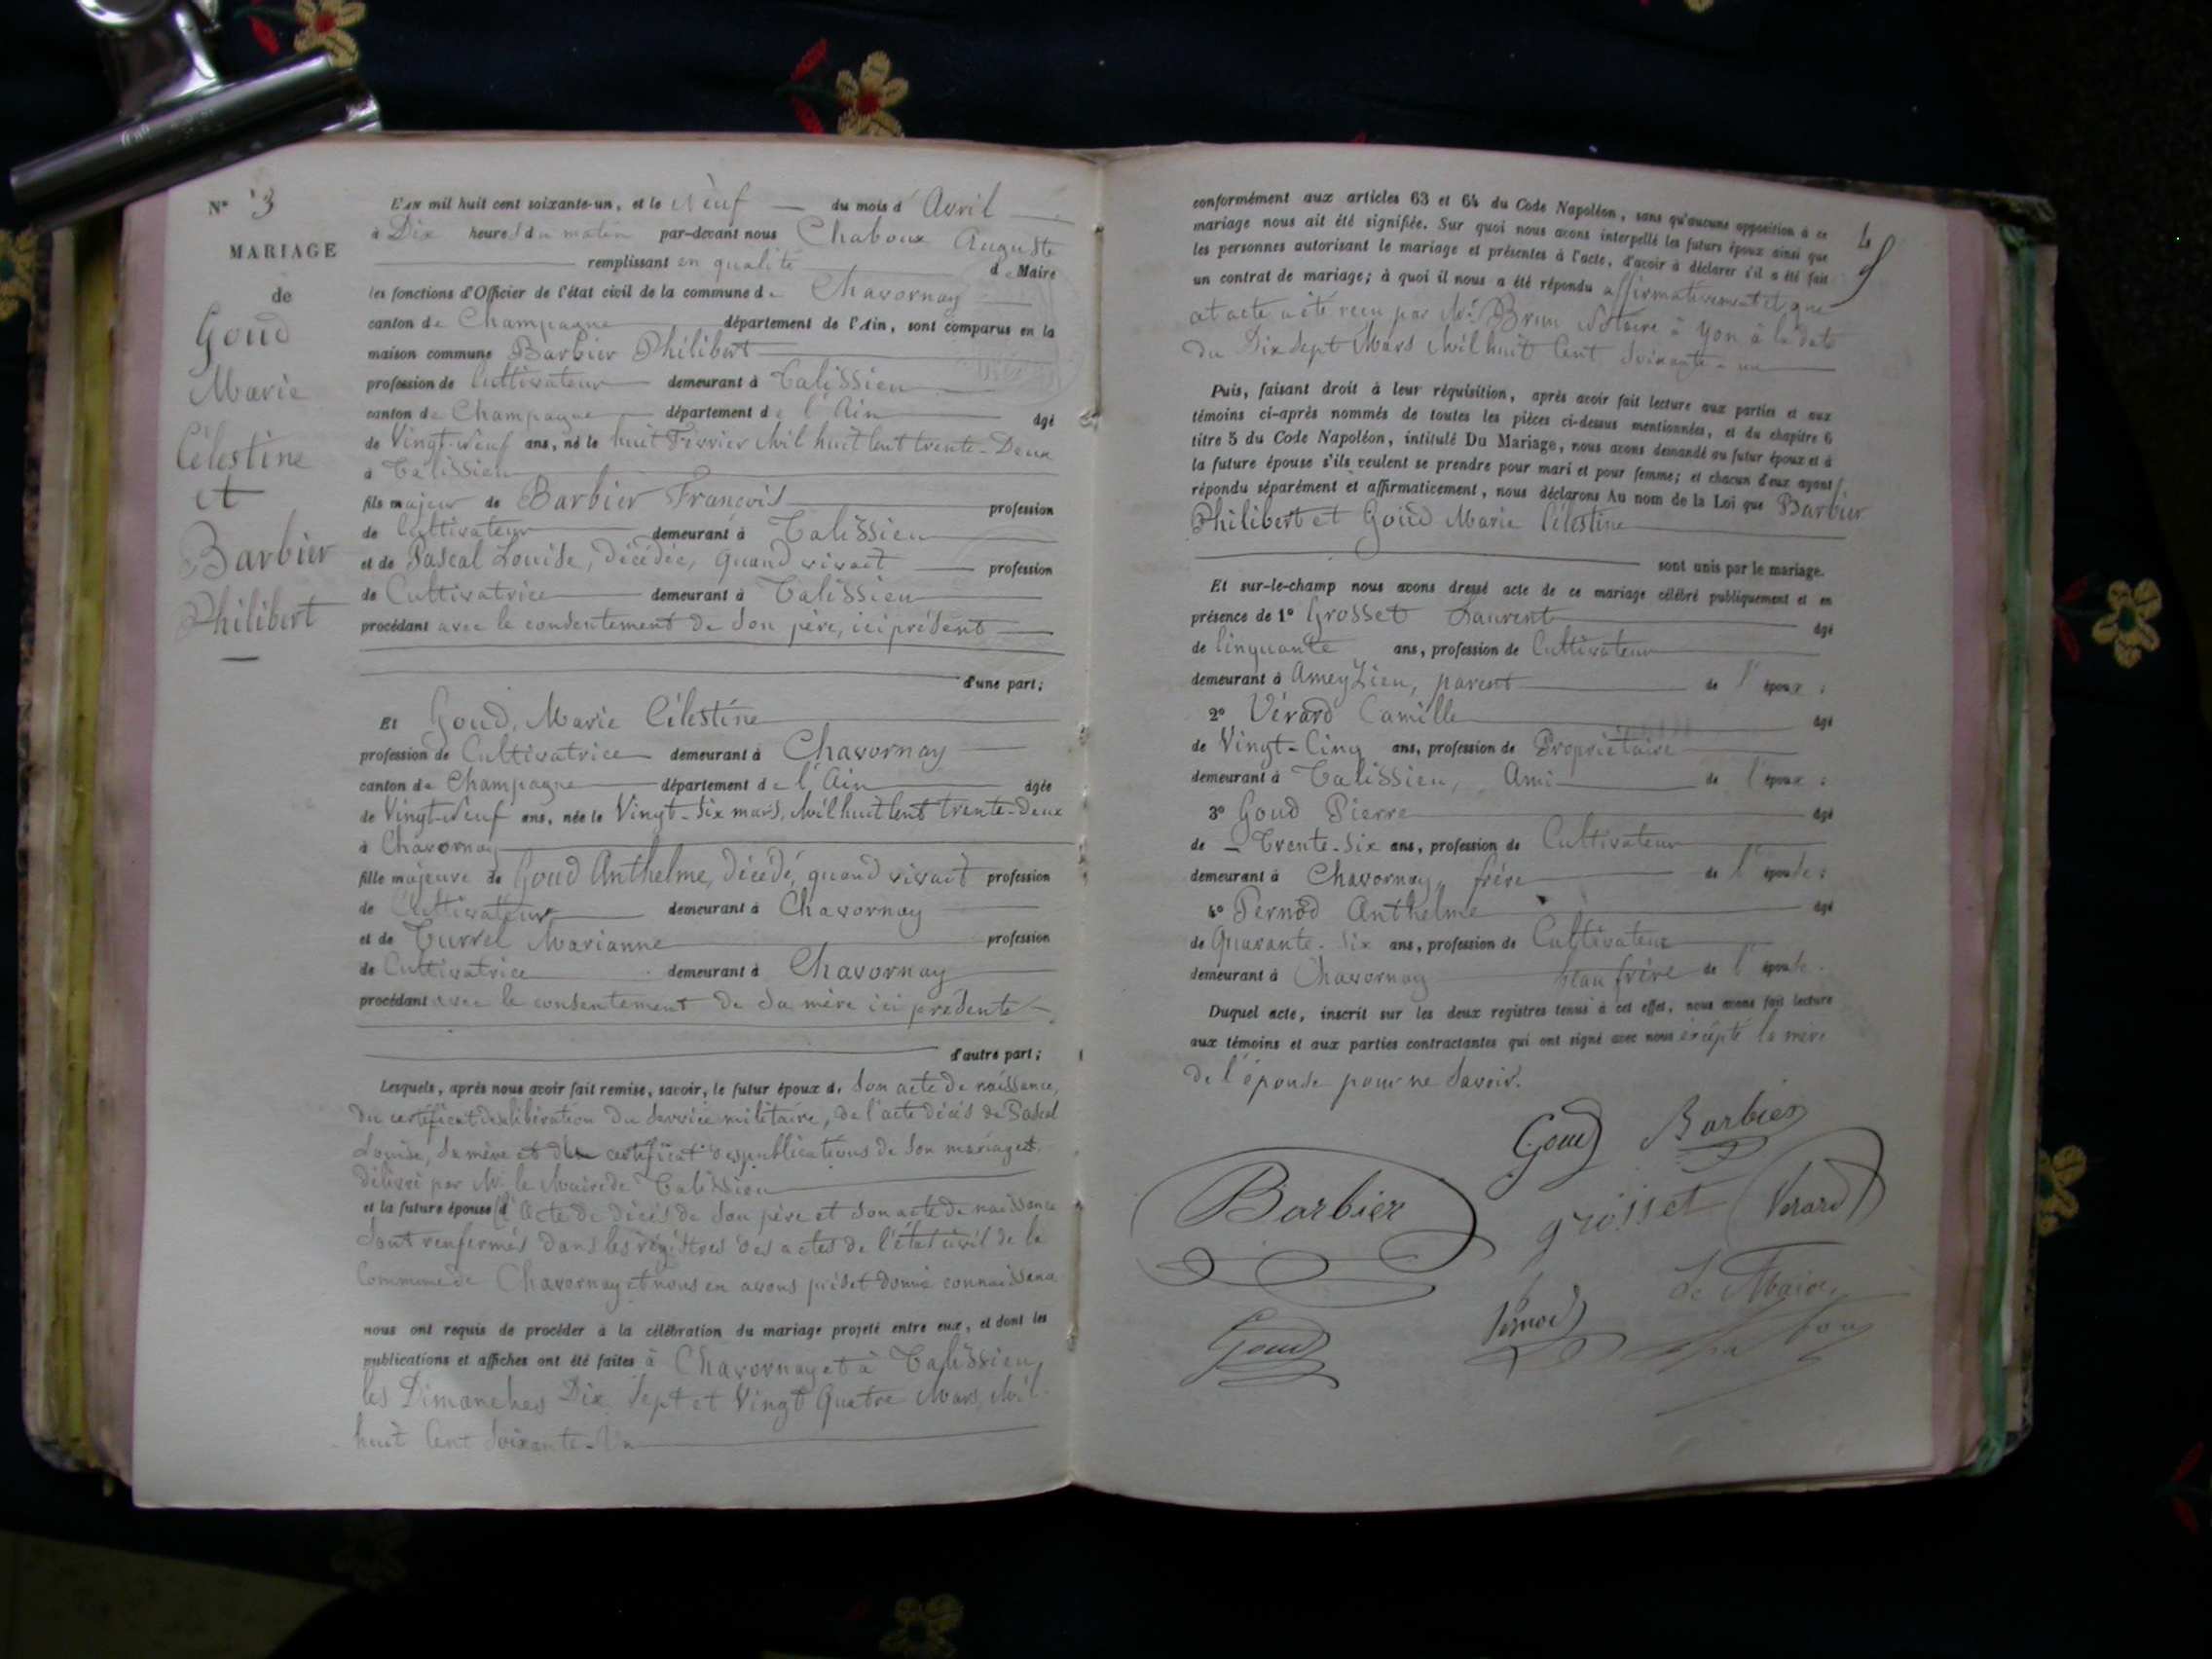 N° 3
MARIAGE
de
Goud
Marie
Célestine
et
Barbier
Philibert
L'an mil huit cent soixante-un, et le Neuf du mois d'Avril
à Dix heures du matin par-devant nous Chaboux Auguste
remplissant en qualité de Maire
les fonctions d'Officier de l'état civil de la commune de Chavornay
canton de Champagne département de l'Ain, sont comparus en la
maison commune Barbier Philibert
profession de Cultivateur demeurant à Talissieu
canton de Champagne département de l'Ain âgé
de Vingt-Neuf ans, né le huit Février Mil huit Cent trente-Deux
à Talissieu
fils majeur de Barbier François profession
de Cultivateur demeurant à Talissieu
et de Pascal Louise, décédée, quand vivait profession
de Cultivatrice demeurant à Talissieu
procédant avec le consentement de son père, ici présent
d'une part;
Et Goud, Marie Célestine
profession de Cultivatrice demeurant à Chavornay
canton de Champagne département de l'Ain âgée
de Vingt-Neuf ans, née le Vingt-Six mars, Mil huit Cent trente-Deux
à Chavornay
fille majeure de Goud Anthelme, décédé, quand vivait profession
de Cultivateur demeurant à Chavornay
et de Turrel Marianne profession
de Cultivatrice demeurant à Chavornay
procédant avec le consentement de sa mère ici présente
d'autre part;
Lesquels, après nous avoir fait remise, savoir, le futur époux de son acte de naissance,
du certificat de libération du service militaire, de l'acte décès de Pascal
Louise, sa mère et du certificat des publications de son mariage
délivré par Mr le Maire de Talissieu
et la future épouse l'acte de décès de son père et son acte de naissance
sont renfermés dans les régistres des actes de l'état civil de la
Commune de Chavornay et nous en avons donné connaissance
nous ont requis de procéder à la célébration du mariage projeté entre eux, et dont les
publications et affiches ont été faites à Chavornay et à Talissieu,
les Dimanches Dix Sept et Vingt Quatre Mars Mil
huit Cent Soixante-Un
conformément aux articles 63 et 64 du Code Napoléon, sans qu'aucune opposition à ce
mariage nous ait été signifiée. Sur quoi nous avons interpellé les futurs époux ainsi que
les personnes autorisant le mariage et présentes à l'acte, d'avoir à déclarer s'il a été fait
un contrat de mariage; à quoi il nous a été répondu affirmativement et que
cet acte a été reçu par Me Brun Notaire à Yon à la date
du Dix Sept Mars Mil huit Cent Soixante-un
Puis, faisant droit à leur réquisition, après avoir fait lecture aux parties et aux
témoins ci-après nommés de toutes les pièces ci-dessus mentionnées, et du chapitre 6
titre 5 du Code Napoléon, intitulé Du Mariage, nous avons demandé au futur époux et à
la future épouse s'ils veulent se prendre pour mari et pour femme; et chacun d'eux ayant
répondu séparément et affirmativement, nous déclarons Au nom de la Loi que Barbier
Philibert et Goud Marie Célestine
sont unis par le mariage.
Et sur-le-champ nous avons dressé acte de ce mariage célébré publiquement et en
présence de 1° Grosset Laurent âgé
de Cinquante ans, profession de Cultivateur
demeurant à Ameyzieu, parent de l'époux;
2° Vérard Camille âgé
de Vingt-Cinq ans, profession de Propriétaire
demeurant à Talissieu, Ami de l'époux:
3° Goud Pierre âgé
de Trente-Six ans, profession de Cultivateur
demeurant à Chavornay, frère de l'épouse;
4° Pernod Anthelme âgé
de Quarante-Six ans, profession de Cultivateur
demeurant à Chavornay beau frère de l'épouse.
Duquel acte, inscrit sur les deux registres tenus à cet effet, nous avons fait lecture
aux témoins et aux parties contractantes qui ont signé avec nous excépté la mère
de l'épouse pour ne savoir.
Goud Barbier
Barbier grosset Verard
Le Maire
Goud Pernod